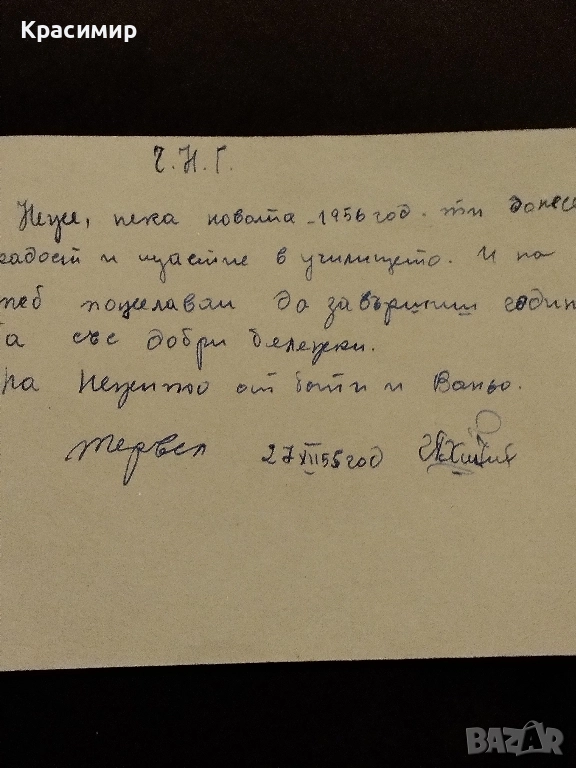 Красимир
Ч.Н.Г.
нека новата 1956 год. ти донесе
радост и щастие в училището. И на
теб пожелавам да завършиш годин
та със добри бележки.
от бати и Ваньо.
Тервел 27 XII 55 год
BAZAR